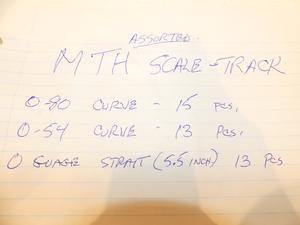 ASSORTED
MTH SCALE-TRACK
O-80 CURVE - 15 PCS,
O-54 CURVE - 13 PCS,
O GUAGE STRAIT (5.5 INCH) 13 PCS